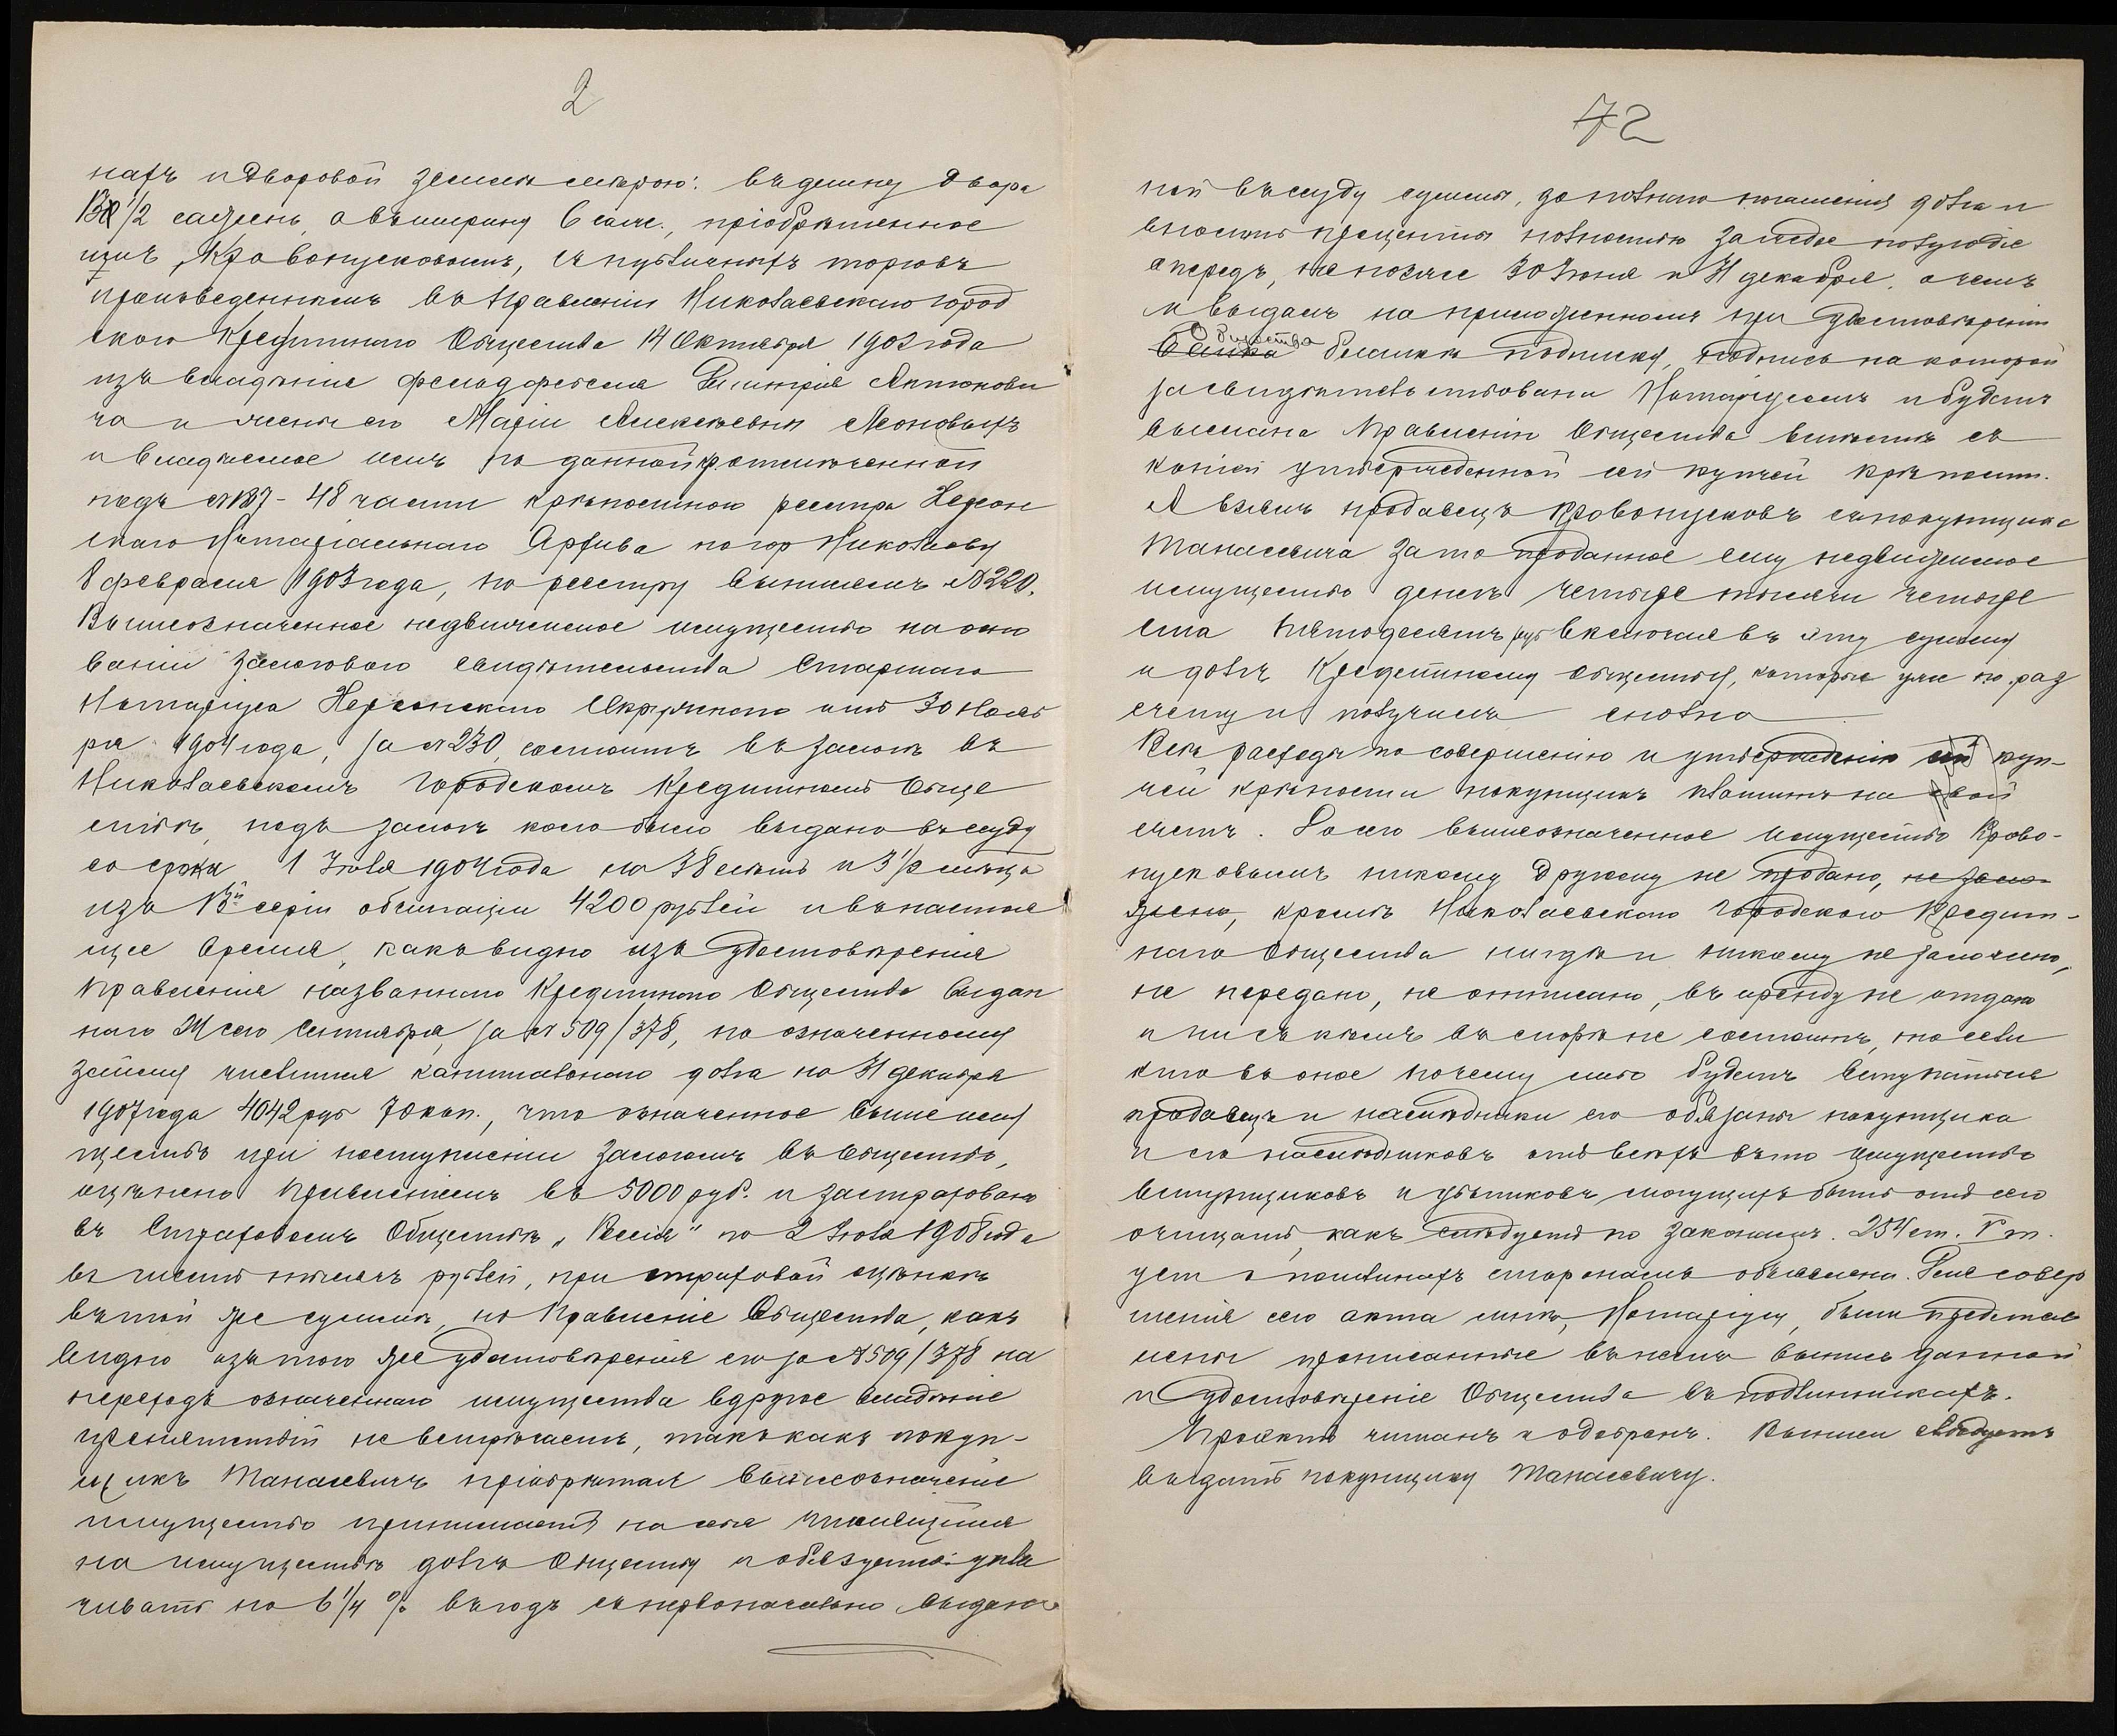 2
нахъ и дворовой земли мѣрою: въ длину двора
13 1/2 саженъ, а въ ширину 6 саж., пріобрѣтенное
имъ, Кровопусковымъ, съ публичныхъ торговъ
произведенныхъ въ Правленіи Николаевскаго город
скаго Кредитнаго Общества 14 Октября 1902 года
изъ владѣнія фельдфебеля Димитрія
ча и жены его Маріи Алексѣевны Леоновыхъ
и владѣемое имъ по данной отмѣченной
подъ №187 - 48 части крѣпостного реестра Херсон
скаго Нотаріальнаго Архива по гор Николаеву
8 февраля 1903 года, по реестру выписемъ №220.
Вышеозначенное недвижимое имущество на осно
ваніи залоговаго свидѣтельства Старшаго
Нотаріуса Херсонскаго Окружнаго отъ 30 Нояб
ря 1904 года, за №230, состоитъ въ залогѣ въ
Николаевскомъ Городскомъ Кредитномъ Обще
ствѣ, подъ залогъ коего было выдано въ ссуду
со срока 1 Іюля 1904 года на 38 лѣтъ и 3 1/2 мѣсяца
изъ 13й серіи облигаціи 4200 рублей и въ настоя
щее время, какъ видно изъ удостовѣренія
Правленія названнаго Кредитнаго Общества выдан
наго 24 сего Сентября, за № 509/378, по означенному
займу числится капитальнаго долга по 31 декабря
1907 года 4042 руб 70 коп., что означенное выше иму
щество при поступленіи залогомъ въ Общество,
оцѣнено Правленіемъ въ 5000 руб. и застраховано
въ Страховомъ Обществѣ „Россія" по 2 Іюля 1908 года
въ шесть тысячъ рублей, при страховой оцѣнкѣ
въ той же суммѣ, но Правленіе Общества, какъ
видно изъ того же удостовѣренія его за №509/378 на
переходъ означеннаго имущества в другое владѣніе
препятствій не встрѣчаетъ, такъ какъ покуп-
щикъ Манасевичъ пріобрѣтая вышеозначеное
имущество принимаетъ на себя числящійся
на имуществѣ долгъ Обществу и обязуется упла
чивать по 6 1/4 % въ годъ съ первоначально выдан
72
ной въ ссуду суммы, до полнаго погашенія долга и
вносить проценты полностью за каждое полугодіе
впередъ, не позже 30 Іюня и 31 декабря, о чемъ
и выдалъ на приложенномъ при удостовѣреніи
Общества
Банка бланкѣ подписку, подпись на которой
засвидѣтельствована Нотаріусомъ и будетъ
выслана Правленію Общества вмѣстѣ съ
копіей утвержденной сей купчей крѣпости.
А взялъ продавецъ Кровопусковъ съ покупщика
Манасевича за то проданное ему недвижимое
имущество денегъ четыре тысячи четыре
ста пятьдесятъ руб включая въ эту сумму
и долгъ Кредитному Обществу, которые уже по раз
счету и получилъ сполна
Всѣ расходы по совершенію и утвержденію сей куп-
чей крѣпости покупщикъ платитъ на свой
счетъ. До сего вышеозначенное имущество Крово-
пусковымъ никому другому не продано, не зало-
жено, кромѣ Николаевскаго Городского Кредит-
наго Общества нигдѣ и никому не заложено,
не передано, не отписано, въ аренду не отдано
и ни съ кѣмъ въ спорѣ не состоитъ, но если
кто въ оное почему либо будетъ вступаться
продавецъ и наслѣдники его обязаны покупщика
и его наслѣдниковъ отъ всѣхъ въ то имущество
вступщиковъ и убытковъ могущихъ быть отъ сего
очищать, какъ слѣдуетъ по законамъ. 254 ст. V т.
уст о пошлинахъ сторонамъ объявлена. Для совер
шенія сего акта мнѣ, Нотаріусу, были представ
лены прописанные въ немъ выпись данной
и удостовѣреніе Общества въ подлинникахъ.
Проектъ читанъ и одобренъ. Выпись слѣдуетъ
выдать покупщику Манасевичу.